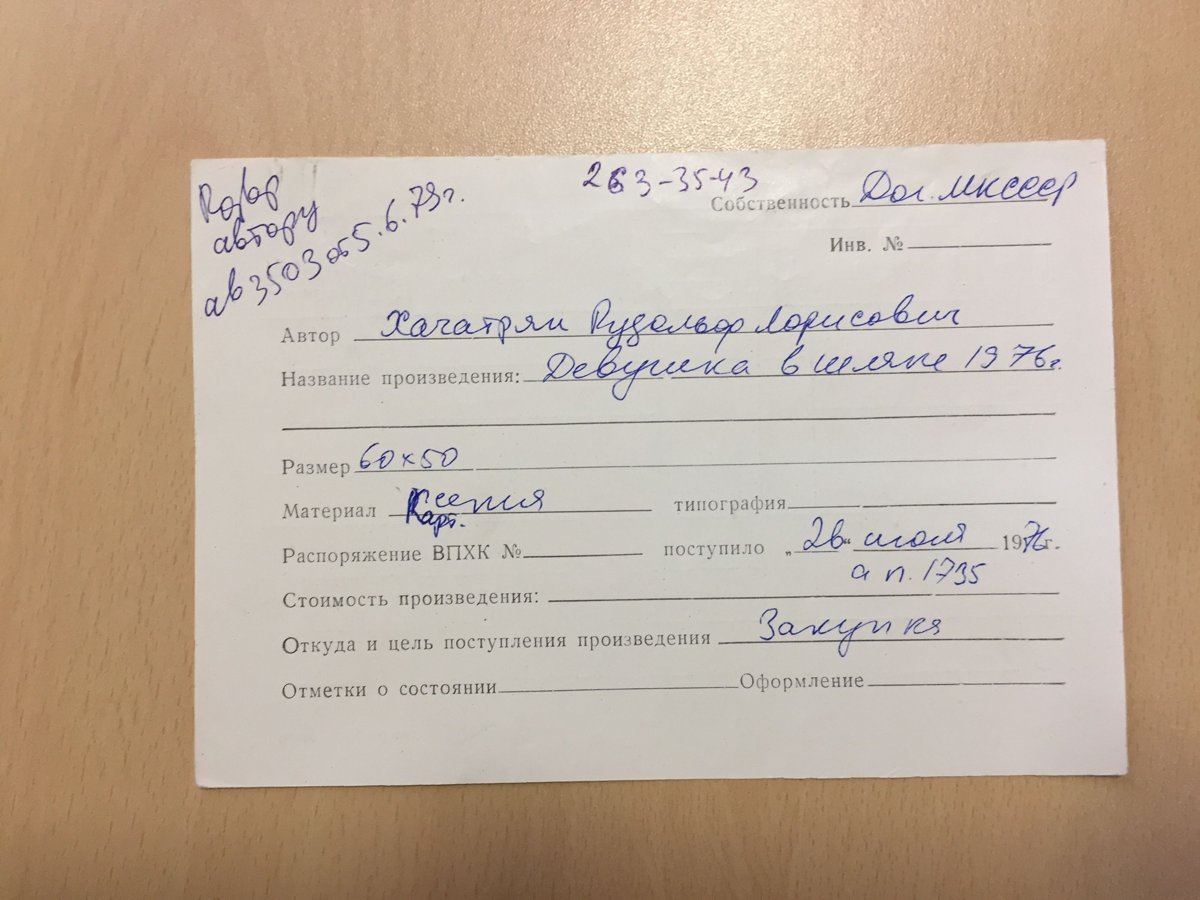 263-35-43
автору
ав 3503 от 5.6.79г.
Собственность Дог. МКСССР
Инв. №
Автор Хачатрян Рудольф Лорисович
Название произведения: Девушка в шляпе 1976г.
Размер 60х50
Материал сепия типография
Карт.
Распоряжение ВПХК № поступило „28“ июля 1976г.
а п. 1735
Стоимость произведения:
Откуда и цель поступления произведения Закупка
Отметки о состоянии Оформление